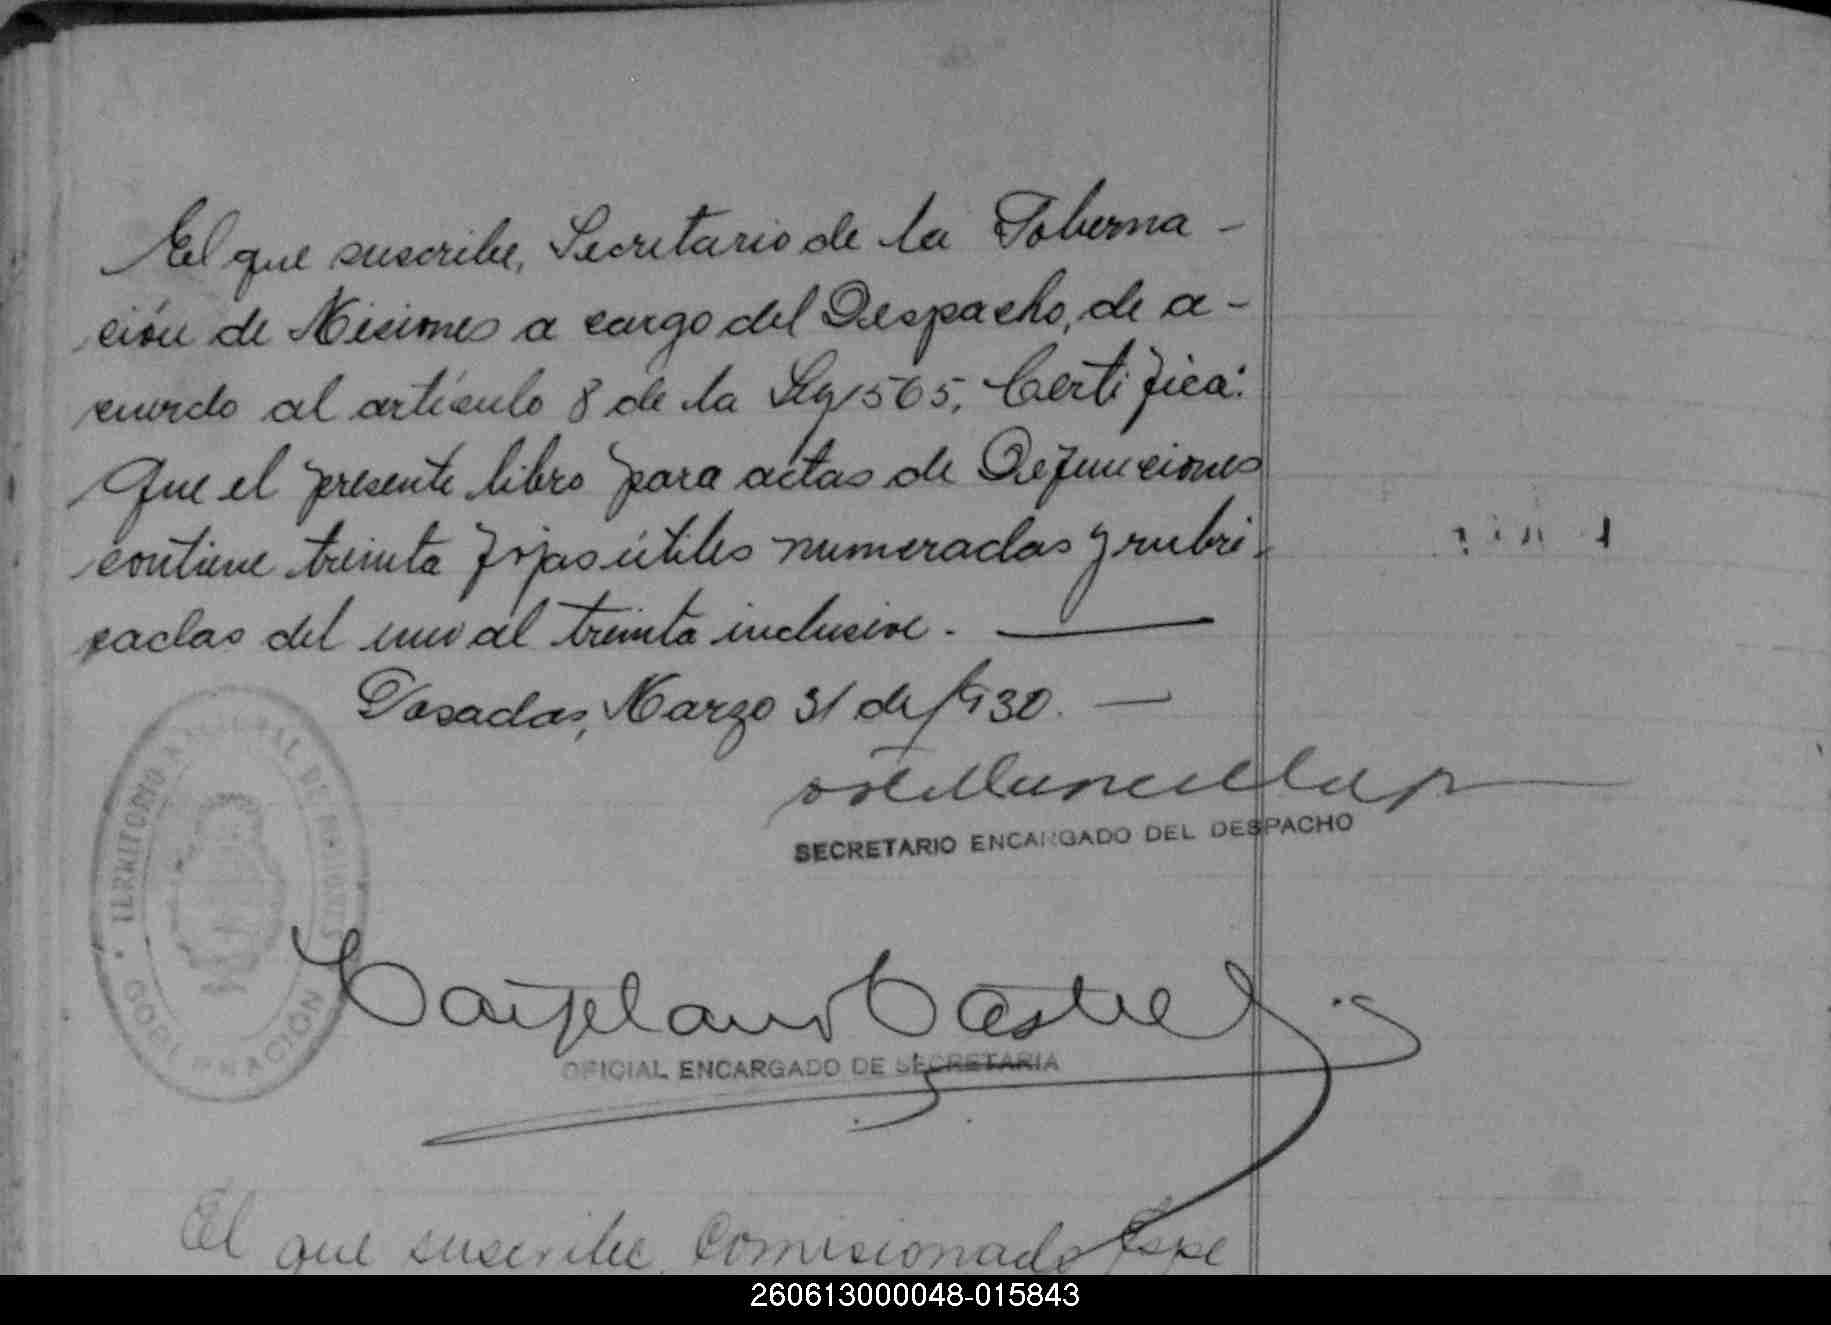 El que suscribe, Secretario de la Goberna-
ción de Misiones a cargo del Despacho, de a-
cuerdo al artículo 8 de la Ley 1565, Certifica:
Que el presente libro para actas de Defunciones
contiene treinta fojas útiles numeradas y rubri-
cadas del uno al treinta inclusive.-
Posadas, Marzo 31 de 1930.-
SECRETARIO ENCARGADO DEL DESPACHO
TERRITORIO NACIONAL DE MISIONES
GOBERNACIÓN
OFICIAL ENCARGADO DE SECRETARIA
El que suscribe, Comisionado Espe
260613000048-015843